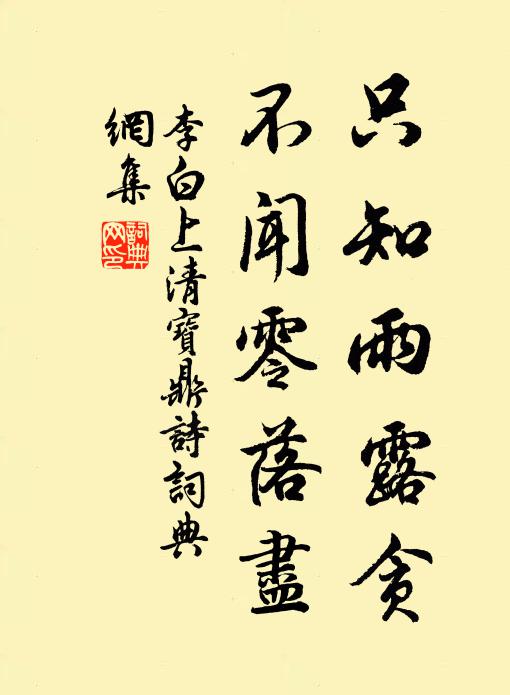 只知雨露貪
不聞零落盡
李白上清寶鼎詩詞典
網集
詞典網印